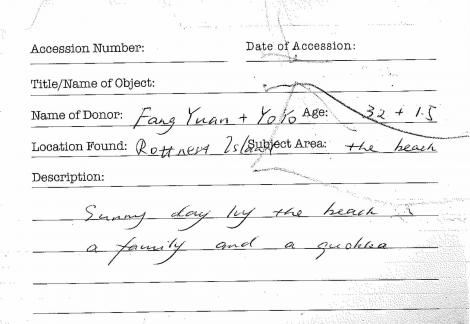 Accession Number: Date of Accession:
Title/Name of Object:
Name of Donor: Fang Yuan + YoYo Age: 32 + 1.5
Location Found: Rottnest Island Subject Area: the beach
Description:
Sunny day by the beach
a family and a quokka